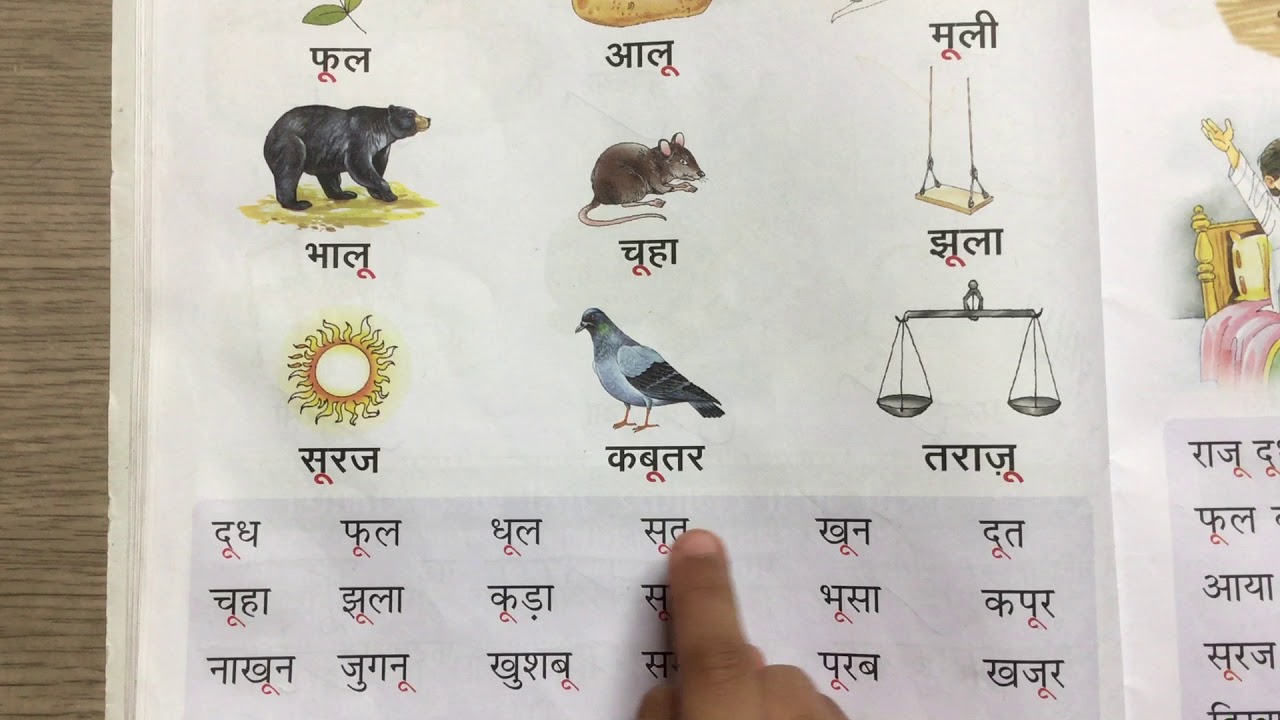 फूल आलू मूली
भालू चूहा झूला
सूरज कबूतर तराज़ू
दूध फूल धूल सूत खून दूत
चूहा झूला कूड़ा भूसा कपूर
नाखून जुगनू खुशबू पूरब खजूर
राजू
फूल
आया
सूरज